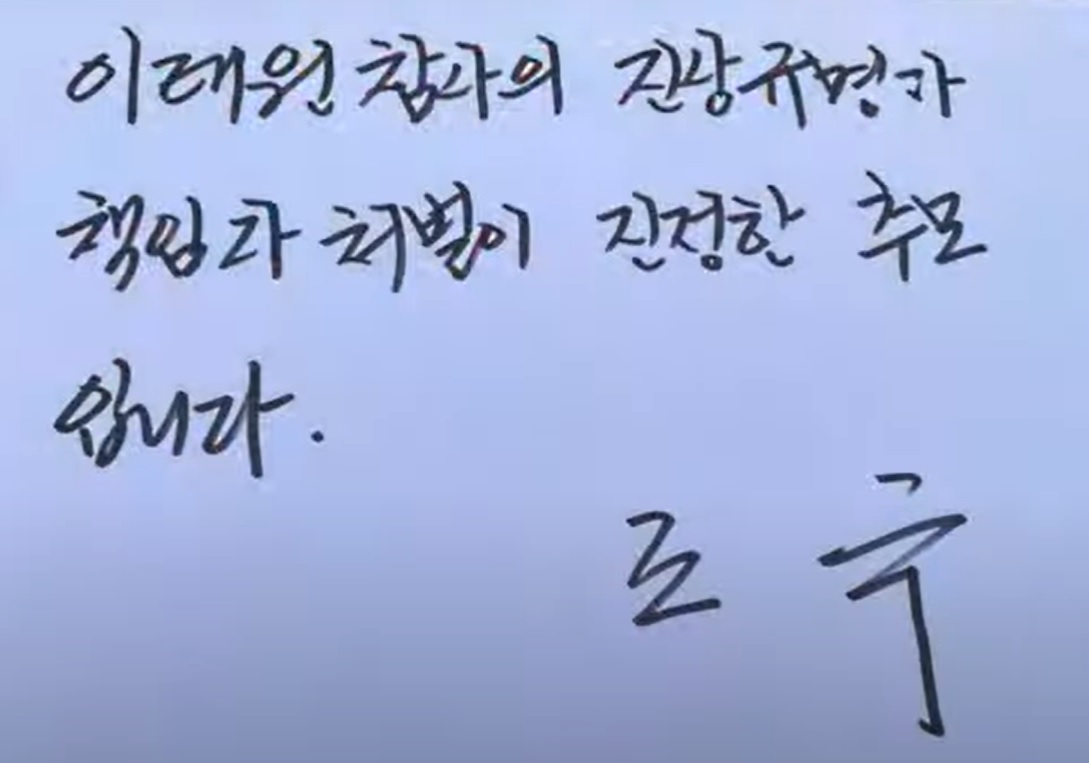 이태원 참사의 진상규명과
책임자 처벌이 진정한 추모
입니다.